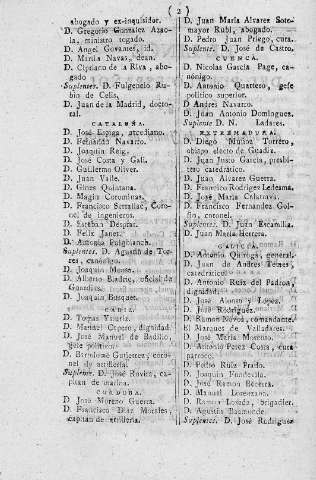 ( 2 )
abogado y ex-inquisidor.
D. Gregorio Gonzalez Azaola, ministro togado.
D. Angel Govantes, id.
D. Martin Navas, dean.
D. Cipriano de la Riva, abogado
Suplentes. D. Fulgencio Rubin de Celis,
D. Juan de la Madrid, doctoral.
CATALUÑA.
D. José Espiga, arcediano.
D. Fernando Navarro.
D. Joaquin Roig.
D. José Costa y Gali.
D. Guillermo Oliver.
D. Juan Valle.
D. Gines Quintana.
D. Magin Corominas.
D. Francisco Serrallac, Coronel de ingenieros.
D. Esteban Desprat.
D. Felix Janer.
D. Antonio Puigblanch.
Suplentes. D. Agustin de Torres, canónigo.
D. Joaquin
D. Alberto oficial de Guardias.
D. Joaquin Busquet.
CADIZ.
D. Tomas Ysturiz.
D. Manuel Cepero, dignidad.
D. José Manuel de Badillo, gefe político.
D. Bartolomé Gutierrez, coronel de artillería.
Suplente. D. José Rovira, capitan de marina.
CORDOBA.
D. José Moreno Guerra.
D. Francisco Diaz Morales, capitan de artilleria.
D. Juan María Alvarez Sotomayor Rubí, abogado.
D. Pedro Juan Priego, cura.
Suplente. D. José de Castro.
CUENCA.
D. Nicolas García Page, canónigo.
D. Antonio Quartero, gefe político superior.
D Andres Navarro.
D. Juan Antonio Dominguez.
Suplente D. N. Ladares.
EXTREMADURA.
D. Diego Muñoz Torrero, obispo electo de Guadix.
D. Juan Justo García, presbitero catedrático.
D. Juan Alvarez Guerra.
D. Francisco Rodriguez Ledesma.
D. José María Calatrava.
D. Francisco Fernandez Golfin, coronel.
Suplentes. D. Juan Escamilla.
D. Juan María Herrera.
GALICIA.
D. Antonio Quiroga, general.
D. Juan de Andres Temes, catedratico
D. Antonio Ruiz del Padron, dignidad.
D. José Alonso y Lopez.
D. José Rodriguez.
D. Ramon Novoa, comandante.
El Marques de Valladares.
D. José María Moscoso.
D. Antonio Perez Costa, cura parroco.
D. Pedro Ruiz Prado.
D. Joaquin Fondevila.
D. José Ramon Becerra.
D. Manuel Lorenzano.
D. Ramon Losada, brigadier.
D. Agustin Baamonde.
Suplentes. D. José Rodriguez